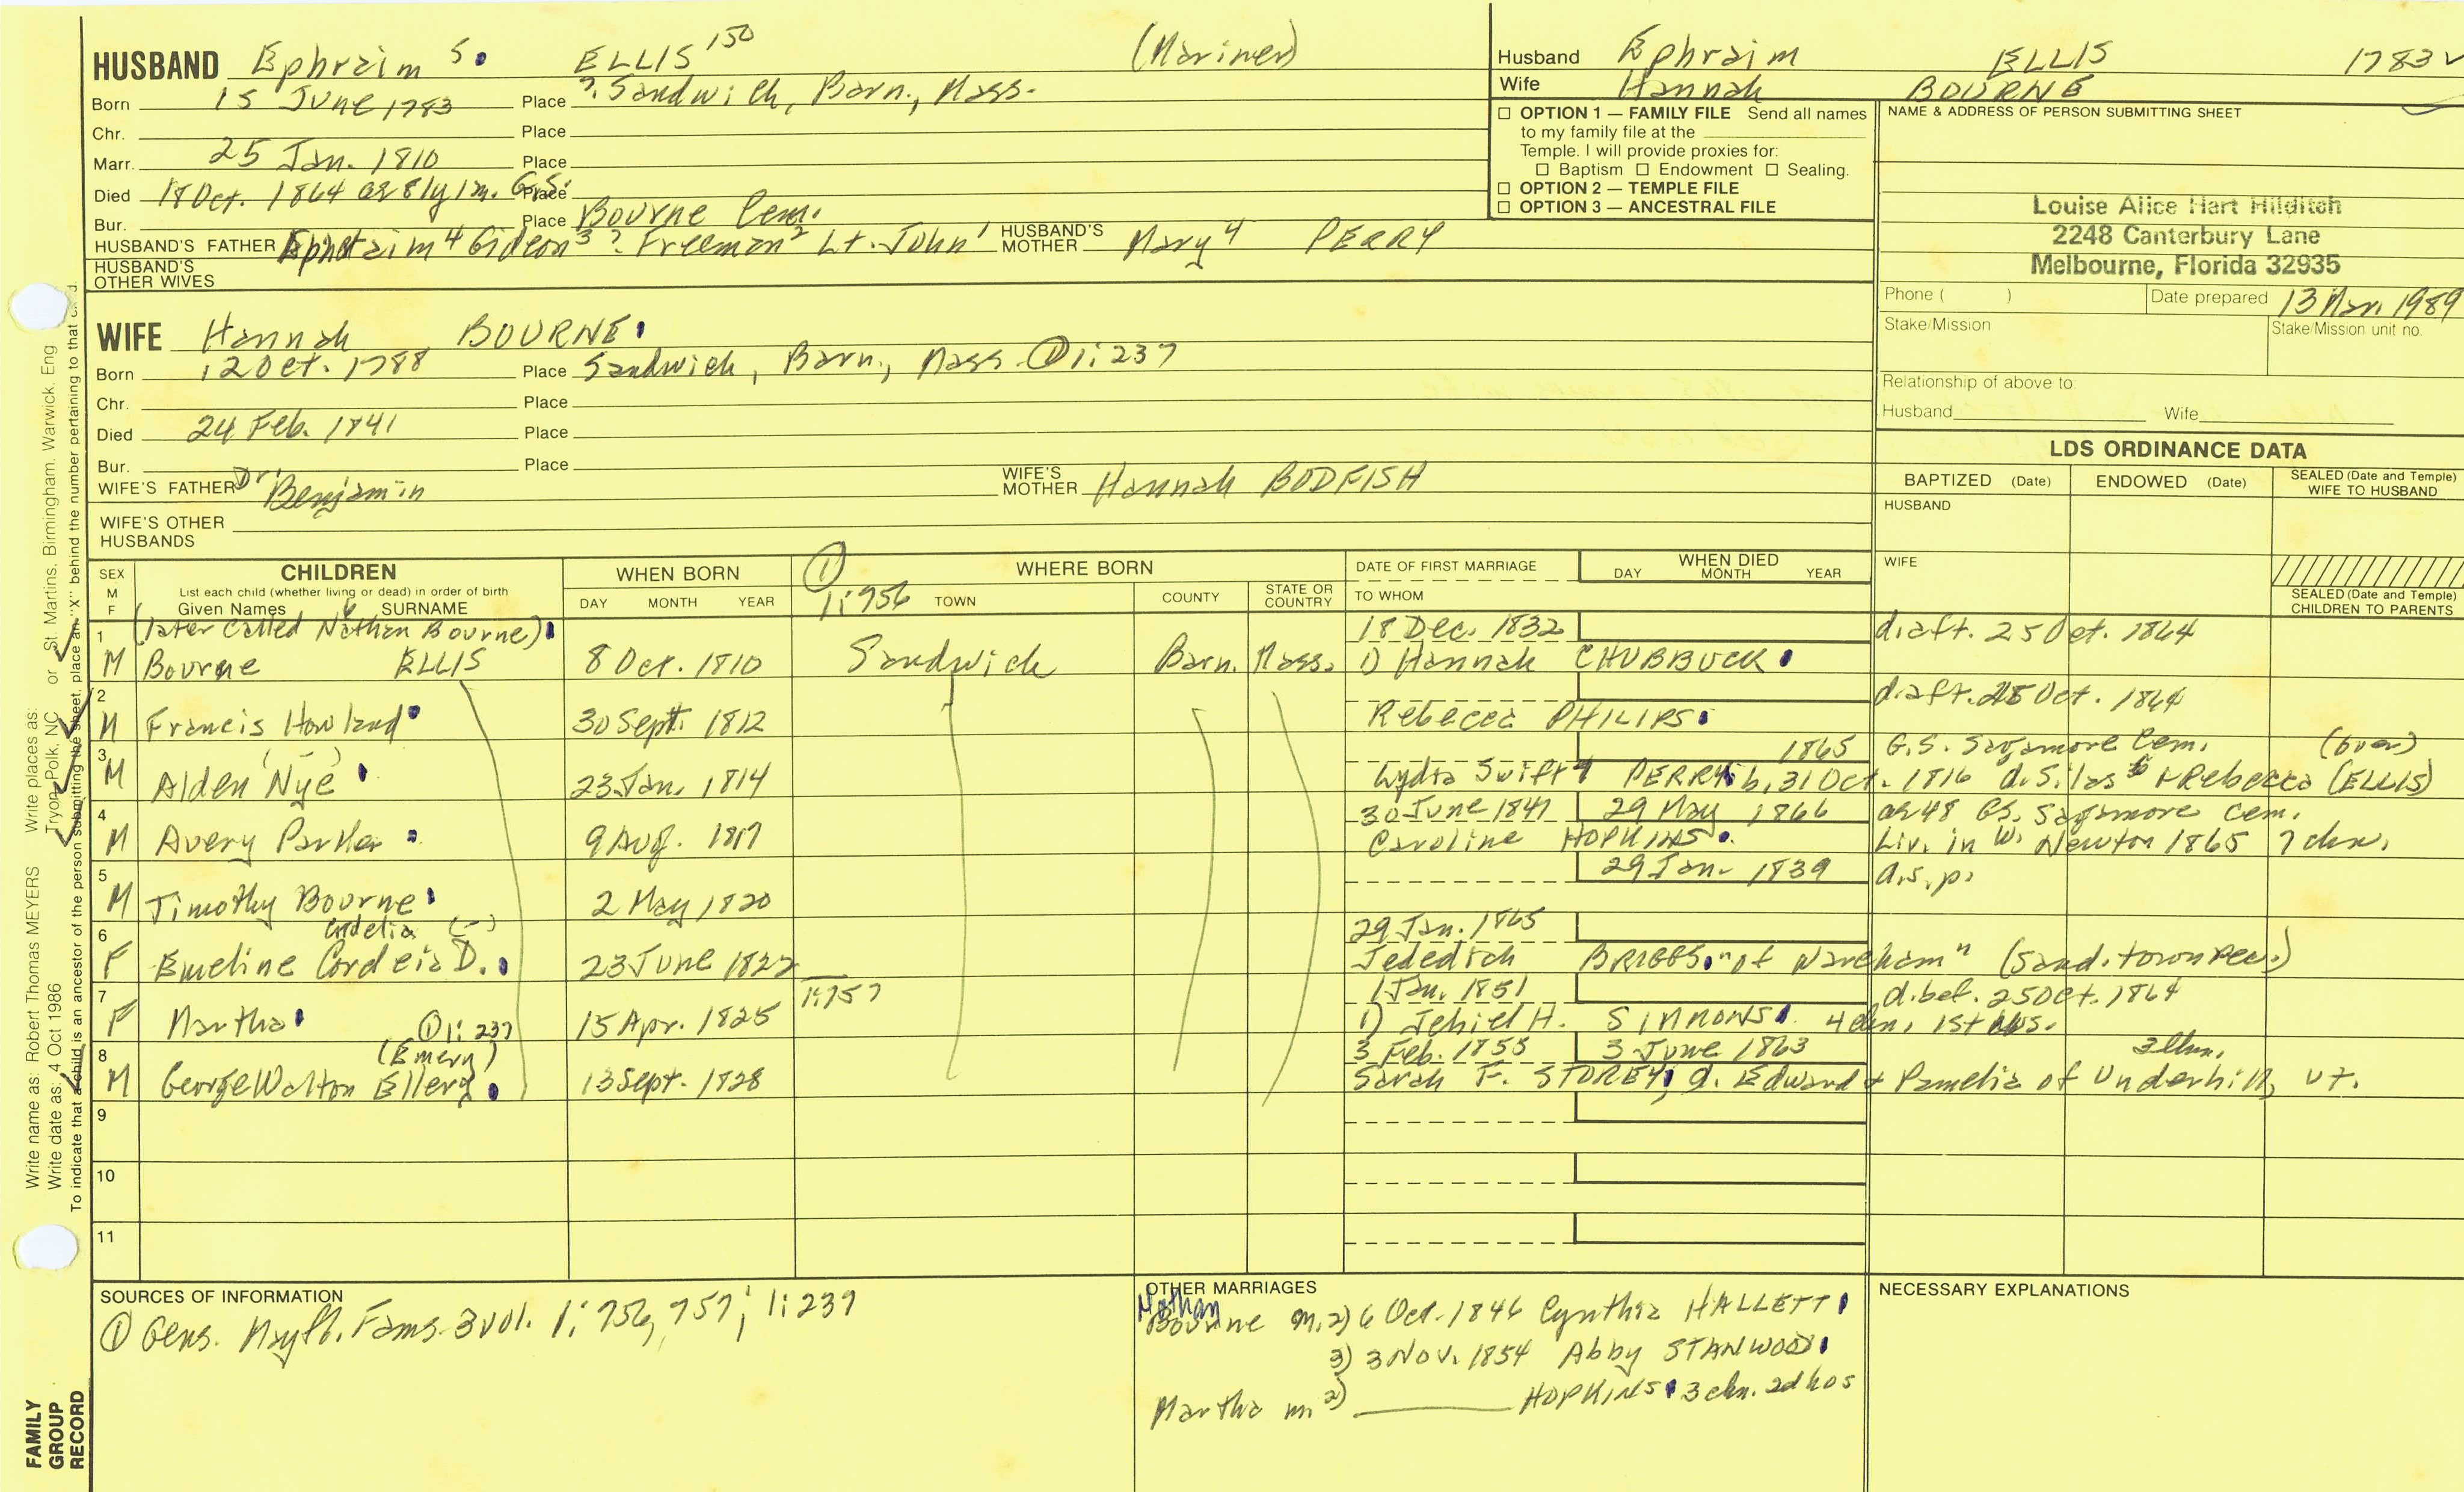 HUSBAND Ephraim 5. ELLIS 150 (Mariner)
Born 15 June 1783 Place ?. Sandwich, Barn., Mass.
Chr. Place
Marr. 25 Jan. 1810 Place
Died 18 Oct. 1864 ae 81y 1m. G.S. Place
Bur. Place Bourne Cem.
HUSBAND'S FATHER Ephraim 4 Gideon 3 ? Freeman 2 Lt. John 1 HUSBAND'S MOTHER Mary 4 PERRY
HUSBAND'S OTHER WIVES
Husband Ephraim ELLIS 1783
Wife Hannah BOURNE
☐ OPTION 1 — FAMILY FILE Send all names
to my family file at the
Temple. I will provide proxies for:
☐ Baptism ☐ Endowment ☐ Sealing.
☐ OPTION 2 — TEMPLE FILE
☐ OPTION 3 — ANCESTRAL FILE
NAME & ADDRESS OF PERSON SUBMITTING SHEET
Louise Alice Hart Hilditch
2248 Canterbury Lane
Melbourne, Florida 32935
Phone ( ) Date prepared 13 Mar. 1989
Stake/Mission Stake/Mission unit no.
Relationship of above to:
Husband Wife
WIFE Hannah BOURNE
Born 12 Oct. 1788 Place Sandwich, Barn., Mass ① 1: 237
Chr. Place
Died 24 Feb. 1841 Place
Bur. Place
WIFE'S FATHER Dr. Benjamin WIFE'S MOTHER Hannah BODFISH
WIFE'S OTHER HUSBANDS
LDS ORDINANCE DATA
BAPTIZED (Date) ENDOWED (Date) SEALED (Date and Temple) WIFE TO HUSBAND
HUSBAND
WIFE
SEALED (Date and Temple) CHILDREN TO PARENTS
SEX M F CHILDREN WHEN BORN ① WHERE BORN DATE OF FIRST MARRIAGE WHEN DIED
List each child (whether living or dead) in order of birth
Given Names 6 SURNAME DAY MONTH YEAR 1: 756 TOWN COUNTY STATE OR COUNTRY TO WHOM DAY MONTH YEAR
1 (later called Nathan Bourne) 18 Dec. 1832 d. aft. 25 Oct. 1864
M Bourne ELLIS 8 Oct. 1810 Sandwich Barn. Mass. 1) Hannah CHUBBUCK
2 d. aft. 25 Oct. 1864
M Francis Howland 30 Sept. 1812 Rebecca PHILIPS
3 1865 G.S. Sagamore Cem. (over)
M Alden Nye 23 Jan. 1814 Lydia Swift 4 PERRY b. 31 Oct. 1816 d. Silas & Rebecca (ELLIS)
4 30 June 1841 29 May 1866 ae 48 GS. Sagamore Cem.
M Avery Parker 9 Aug. 1817 Caroline HOPKINS. Liv. in W. Newton 1865 7 chn.
5 29 Jan. 1839 d.s.p.
M Timothy Bourne 2 May 1820
6 Cordelia (-) 29 Jan. 1865
F Emeline Cordeia D. 23 June 1822 Jedediah BRIGGS "of Wareham" (Sand. town rec.)
7 1: 757 1 Jan. 1851 d. bef. 25 Oct. 1864
F Martha ① 1: 237 15 Apr. 1825 1) Jehiel H. SIMMONS 4 chn. 1st hus.
8 (Emery) 3 Feb. 1855 3 June 1863 3 chn.
M George Walton Ellery 13 Sept. 1828 Sarah F. STOREY, d. Edward & Pamelia of Underhill, Vt.
9
10
11
SOURCES OF INFORMATION
① Gens. Mayfl. Fams. 3 vol. 1: 756, 757; 1: 237
OTHER MARRIAGES
Nathan
Bourne m. 2) 6 Oct. 1846 Cynthia HALLETT
3) 3 Nov. 1854 Abby STANWOOD
Martha m. 2) HOPKINS 3 chn. 2d hus
NECESSARY EXPLANATIONS
Write name as: Robert Thomas MEYERS Write places as:
Write date as: 4 Oct 1986 Tryon, Polk, NC or St. Martins, Birmingham, Warwick, Eng
To indicate that a child is an ancestor of the person submitting the sheet, place an "X" behind the number pertaining to that child.
FAMILY
GROUP
RECORD